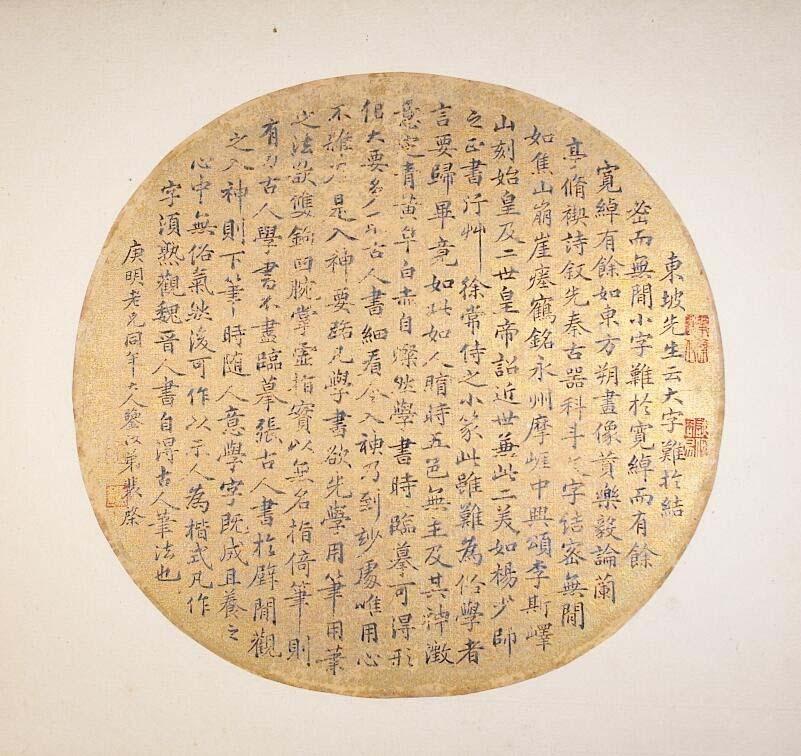 東坡先生云大字難於結
密而無間小字難於寬綽而有餘
寬綽有餘如東方朔畫像贊樂毅論蘭
亭脩禊詩叙先秦古器科斗文字結密無間
如焦山崩崖瘞鶴銘永州摩崕中興頌李斯嶧
山刻始皇及二世皇帝詔近世兼此二美如楊少師
之正書行艸徐常侍之小篆此雖難為俗學者
言要歸畢竟如此如人暗時五色無主及其神澂
意定青黃皁白亦自燦然學書時臨摹可得形
似大要多古人書細看令入神乃到妙處唯用心
不雜乃是入神要路凡學書欲先學用筆用筆
之法欲雙鉤回腕掌虛指實以無名指倚筆則
有力古人學書不盡臨摹張古人書於壁間觀
之入神則下筆時隨人意學字既成且養之
心中無俗氣然後可作以示人為楷式凡作
字須熟觀魏晉人書自得古人筆法也
庚明老兄同年大人鑒政弟裴